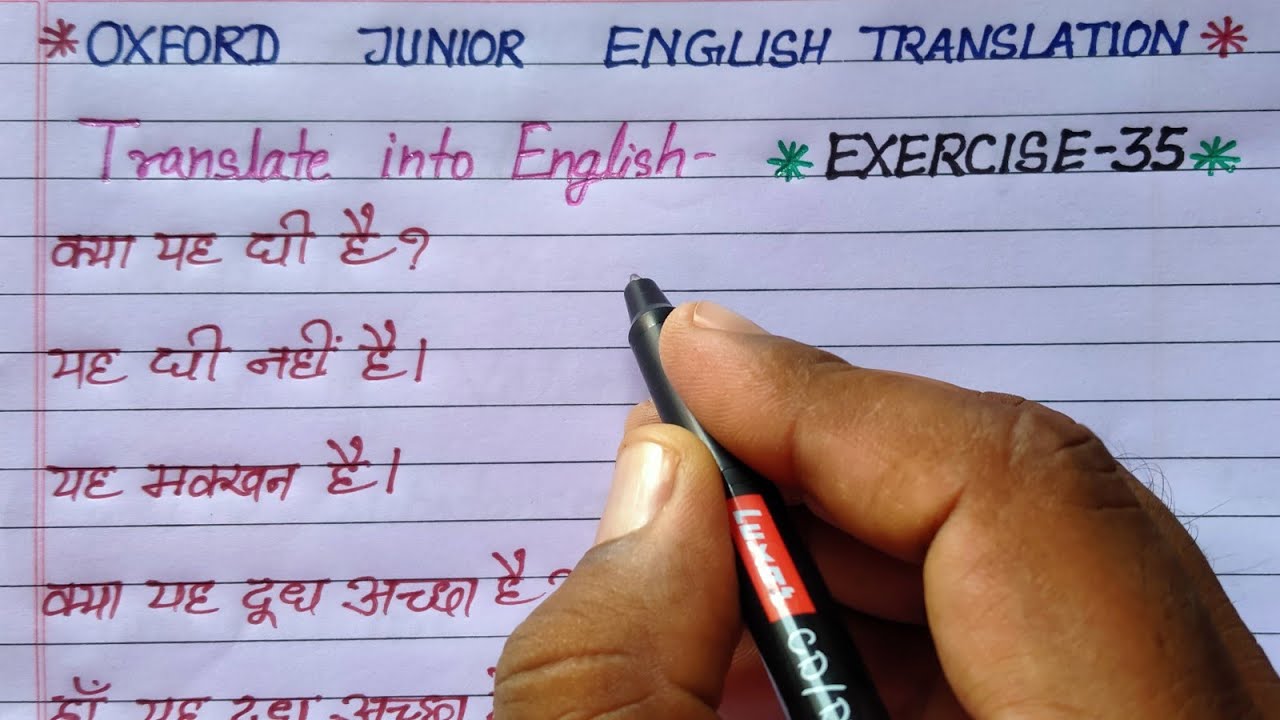 *OXFORD JUNIOR ENGLISH TRANSLATION*
Translate into English-
*EXERCISE-35*
क्या यह घी है?
यह घी नहीं है।
यह मक्खन है।
क्या यह दूध अच्छा है?
हाँ यह दूध अच्छा
Luxor